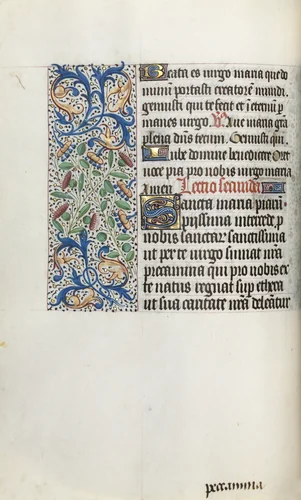 Beata es virgo maria que do
minum portasti creatorem mundi.
genuisti qui te fecit et in eternum p
manes virgo. V. Ave maria gra
plena dns tecum. Genuisti qui.
Iube domine benedicere Oret
voce pia pro nobis virgo maria
Amen Lectio secunda
Sancta maria piarum
piissima intercede p
nobis sanctarum sanctissima
ut per te virgo sumat nra
precamina qui pro nobis ex
te natus regnat sup ethera
ut sua caritate nra deleantur
peccamina